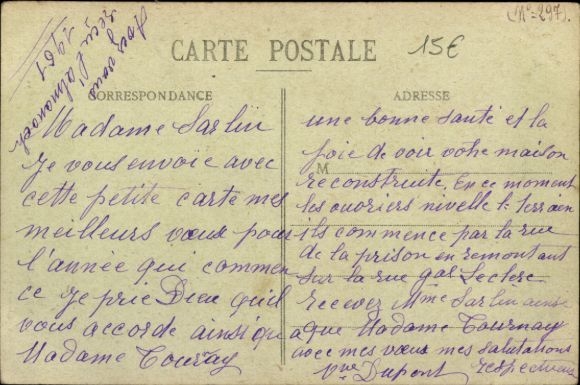 (N°=297).
Avez vous
reçu l'almanach
1961
15€
CARTE POSTALE
CORRESPONDANCE
ADRESSE
Madame Sarlin
Je vous envoie avec
cette petite carte mes
meilleurs vœux pour
l'année qui commen
ce Je prie Dieu qu'il
vous accorde ainsi qu'a
Madame Touray
une bonne santé et la
joie de voir votre maison
M
reconstruite. En ce moment
les ouvriers nivelle le terraen
ils commence par la rue
de la prison en remontant
sur la rue gal Leclerc
recever Mme Sarlin ainse
que Madame Tournay
avec mes vœux mes salutations
respectueuses
Vve Dupont